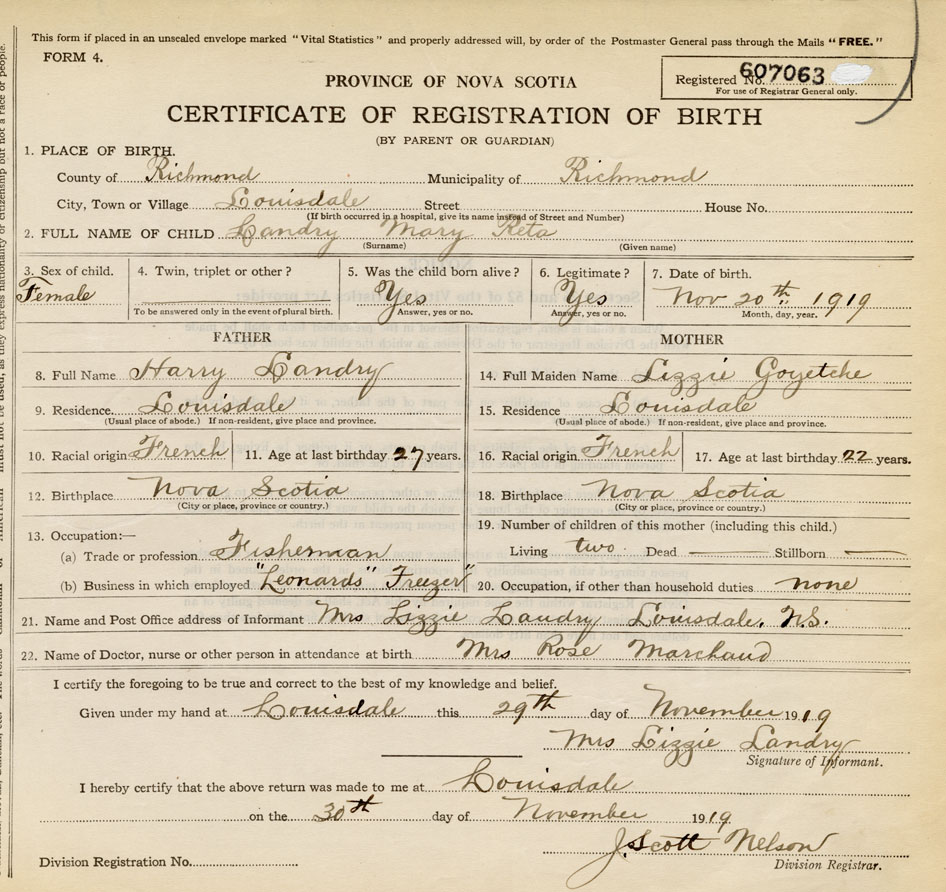 This form if placed in an unsealed envelope marked "Vital Statistics" and properly addressed will, by order of the Postmaster General pass through the Mails "FREE."
FORM 4.
Registered No. 607063
For use of Registrar General only.
PROVINCE OF NOVA SCOTIA
CERTIFICATE OF REGISTRATION OF BIRTH
(BY PARENT OR GUARDIAN)
1. PLACE OF BIRTH.
County of Richmond Municipality of Richmond
City, Town or Village Louisdale Street House No.
(If birth occurred in a hospital, give its name instead of Street and Number)
2. FULL NAME OF CHILD Landry Mary Reta
(Surname) (Given name)
3. Sex of child. 4. Twin, triplet or other? 5. Was the child born alive? 6. Legitimate? 7. Date of birth.
Female Yes Yes Nov 20th 1919
To be answered only in the event of plural birth. Answer, yes or no. Answer, yes or no. Month, day, year.
FATHER MOTHER
8. Full Name Harry Landry 14. Full Maiden Name Lizzie Goyetche
9. Residence. Louisdale 15. Residence Louisdale
(Usual place of abode.) If non-resident, give place and province. (Usual place of abode.) If non-resident, give place and province.
10. Racial origin French 11. Age at last birthday 27 years. 16. Racial origin French 17. Age at last birthday 22 years.
12. Birthplace Nova Scotia 18. Birthplace Nova Scotia
(City or place, province or country.) (City or place, province or country.)
13. Occupation:— 19. Number of children of this mother (including this child.)
(a) Trade or profession Fisherman Living two Dead — Stillborn —
(b) Business in which employed "Leonards" Freezer" 20. Occupation, if other than household duties none
21. Name and Post Office address of Informant Mrs Lizzie Landry Louisdale, N.S.
22. Name of Doctor, nurse or other person in attendance at birth Mrs Rose Marchand
I certify the foregoing to be true and correct to the best of my knowledge and belief.
Given under my hand at Louisdale this 29th day of November 1919
Mrs Lizzie Landry
Signature of Informant.
I hereby certify that the above return was made to me at Louisdale
on the 30th day of November 1919
J. Scott Nelson
Division Registration No. Division Registrar.